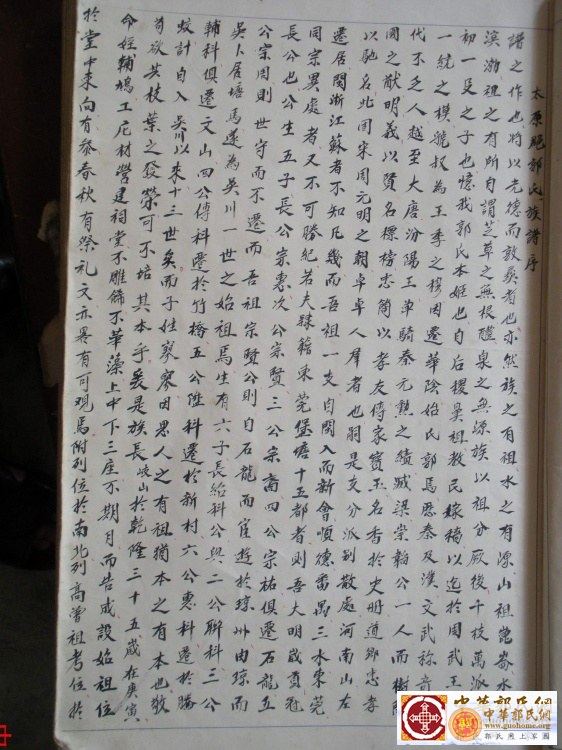 太原郡郭氏族譜序
譜之作也將以光德而敦彝者也亦然族之有祖水之有源山祖崑崙水
溟渤祖之有所自謂芝草之無根醴泉之無源族以祖分厥後千枝萬派
初一民之子也憶我郭氏本姬也自后稷粤祖教民稼穡以迄於周武王
一統之模號叔為王季之穆因遷華陰始氏郭焉歷秦及漢文武称奇
代不乏人越至大唐汾陽王单騎奏元勲之績减渠崇韜公一人而樹
國之猷明義以賢名標榜忠簡以孝友傳家寳玉名香於史册道鄉忠孝
以馳名北周宋周元明之朝卓卓人犀者也嗣是支分派别散處河南山左
遷居閩浙江蘇者不知凡幾而吾祖一支自閩入而新會順德番禺三水東莞
同宗異處者又不可勝紀若夫隸籍東莞堡塘十五都者則吾大明誠齋祖
長公也公生五子長公宗惠次公宗賢三公宗裔四公宗祐俱遷石龍五
公宗周則世守而不遷而吾祖宗賢公則自石龍而宦遊於瓊州由瓊而
吳卜居塘馬遂為吳川一世之始祖焉生有六子長給科公與二公聯科三公
輔科俱遷文山四公傳科遷於竹橋五公陞科遷於新村六公惠科遷於勝
蚊計自入吳川以來十三世矣而子姓寥寥因思人之有祖猶本之有本也敬
苟欲其枝葉之發榮可不培其本乎爰是族長岐山於乾隆三十五歲在庚寅
命姪輔鳩工庀材營建祠堂不雕飾不華藻上中下三座不期月而告成設始祖位
於堂中東向有黍春秋有祭礼文亦畧有可觀焉附列位於南北列高曾祖考位於
中華郭氏網
中華郭氏網
www.guohome.org
郭氏網上家園